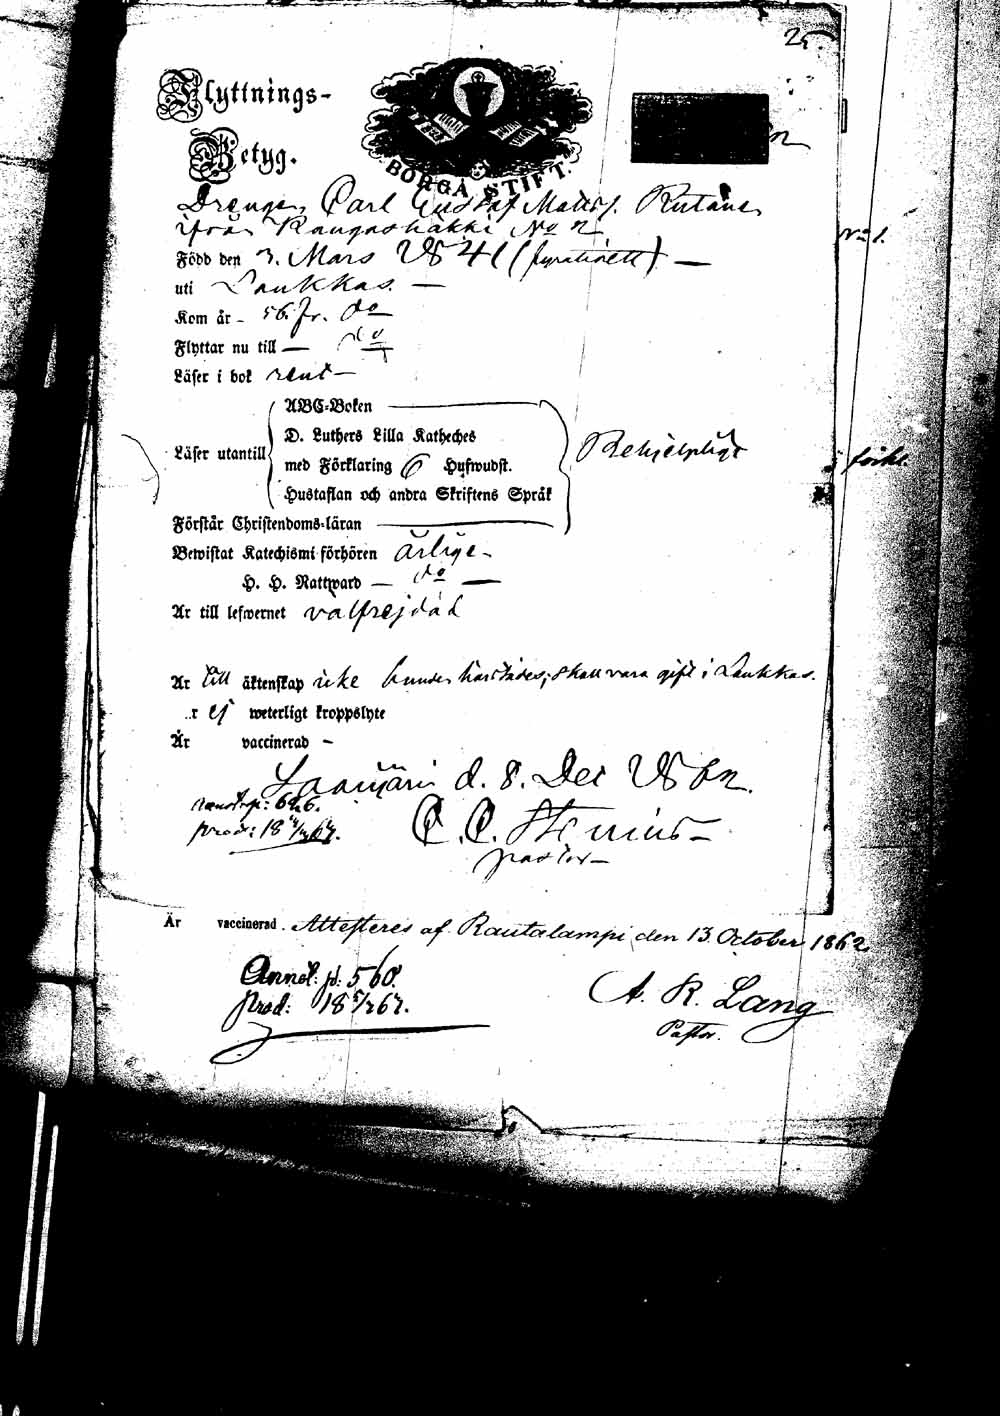 25.
Flyttnings-
Betyg.
BORGÅ STIFT.
Drengen Carl Gustaf Matts s. Rutane
ifrån Kangashäkki No 2
No 1.
Född den 3. Mars 1841 (fyrationett) —
uti Laukkas. —
Kom år - 56 fr. do
Flyttar nu till — do
Läser i bok rent —
Läser utantill
ABC-Boken
D. Luthers Lilla Katheches
med Förklaring 6 Hufwudst.
Hustaflan och andra Skriftens Språk
Behjelpligt
förkl.
Förstår Christendoms-läran
Bewistat Katechismi-förhören årlige-
H. H. Nattward — do —
Är till lefwernet välfrejdad
Är till äktenskap icke bunden härstädes; skall vara gift i Laukkas.
r ej weterligt kroppslyte
Är vaccinerad -
d. 8. Dec 1862.
p: 626.
prod: 18 67.
C. C. Stenius-
pastor-
Är vaccinerad. Attesteres af Rautalampi den 13. October 1862
Annot: p: 560.
Prod: 18 67.
A. R. Lang
Pastor.